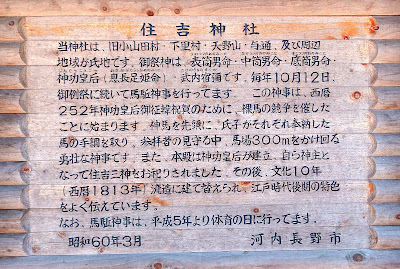 住吉神社
当神社は、旧小山田村・下里村・天野山・与通、及び周辺
地域が氏地です。御祭神は、表筒男命・中筒男命・底筒男命・
神功皇后(息長足姫命)・武内宿禰です。毎年10月12日、
御例祭に続いて馬駈神事を行ってます。 この神事は、西暦
252年神功皇后御征韓祝賀のために、裸馬の競争を催した
ことに始まります。神馬を先頭に、氏子がそれぞれ奉納した
馬の手綱を取り、参拝者の見守る中、馬場300mをかけ回る
勇壮な神事です。また、本殿は神功皇后が建立、自ら神主と
なって住吉三神をお祀りされました。その後、文化10年
(西暦1813年)流造に建て替えられ、江戸時代後期の特色
をよく伝えています。
なお、馬駈神事は、平成5年より体育の日に行ってます。
昭和60年3月 河内長野市